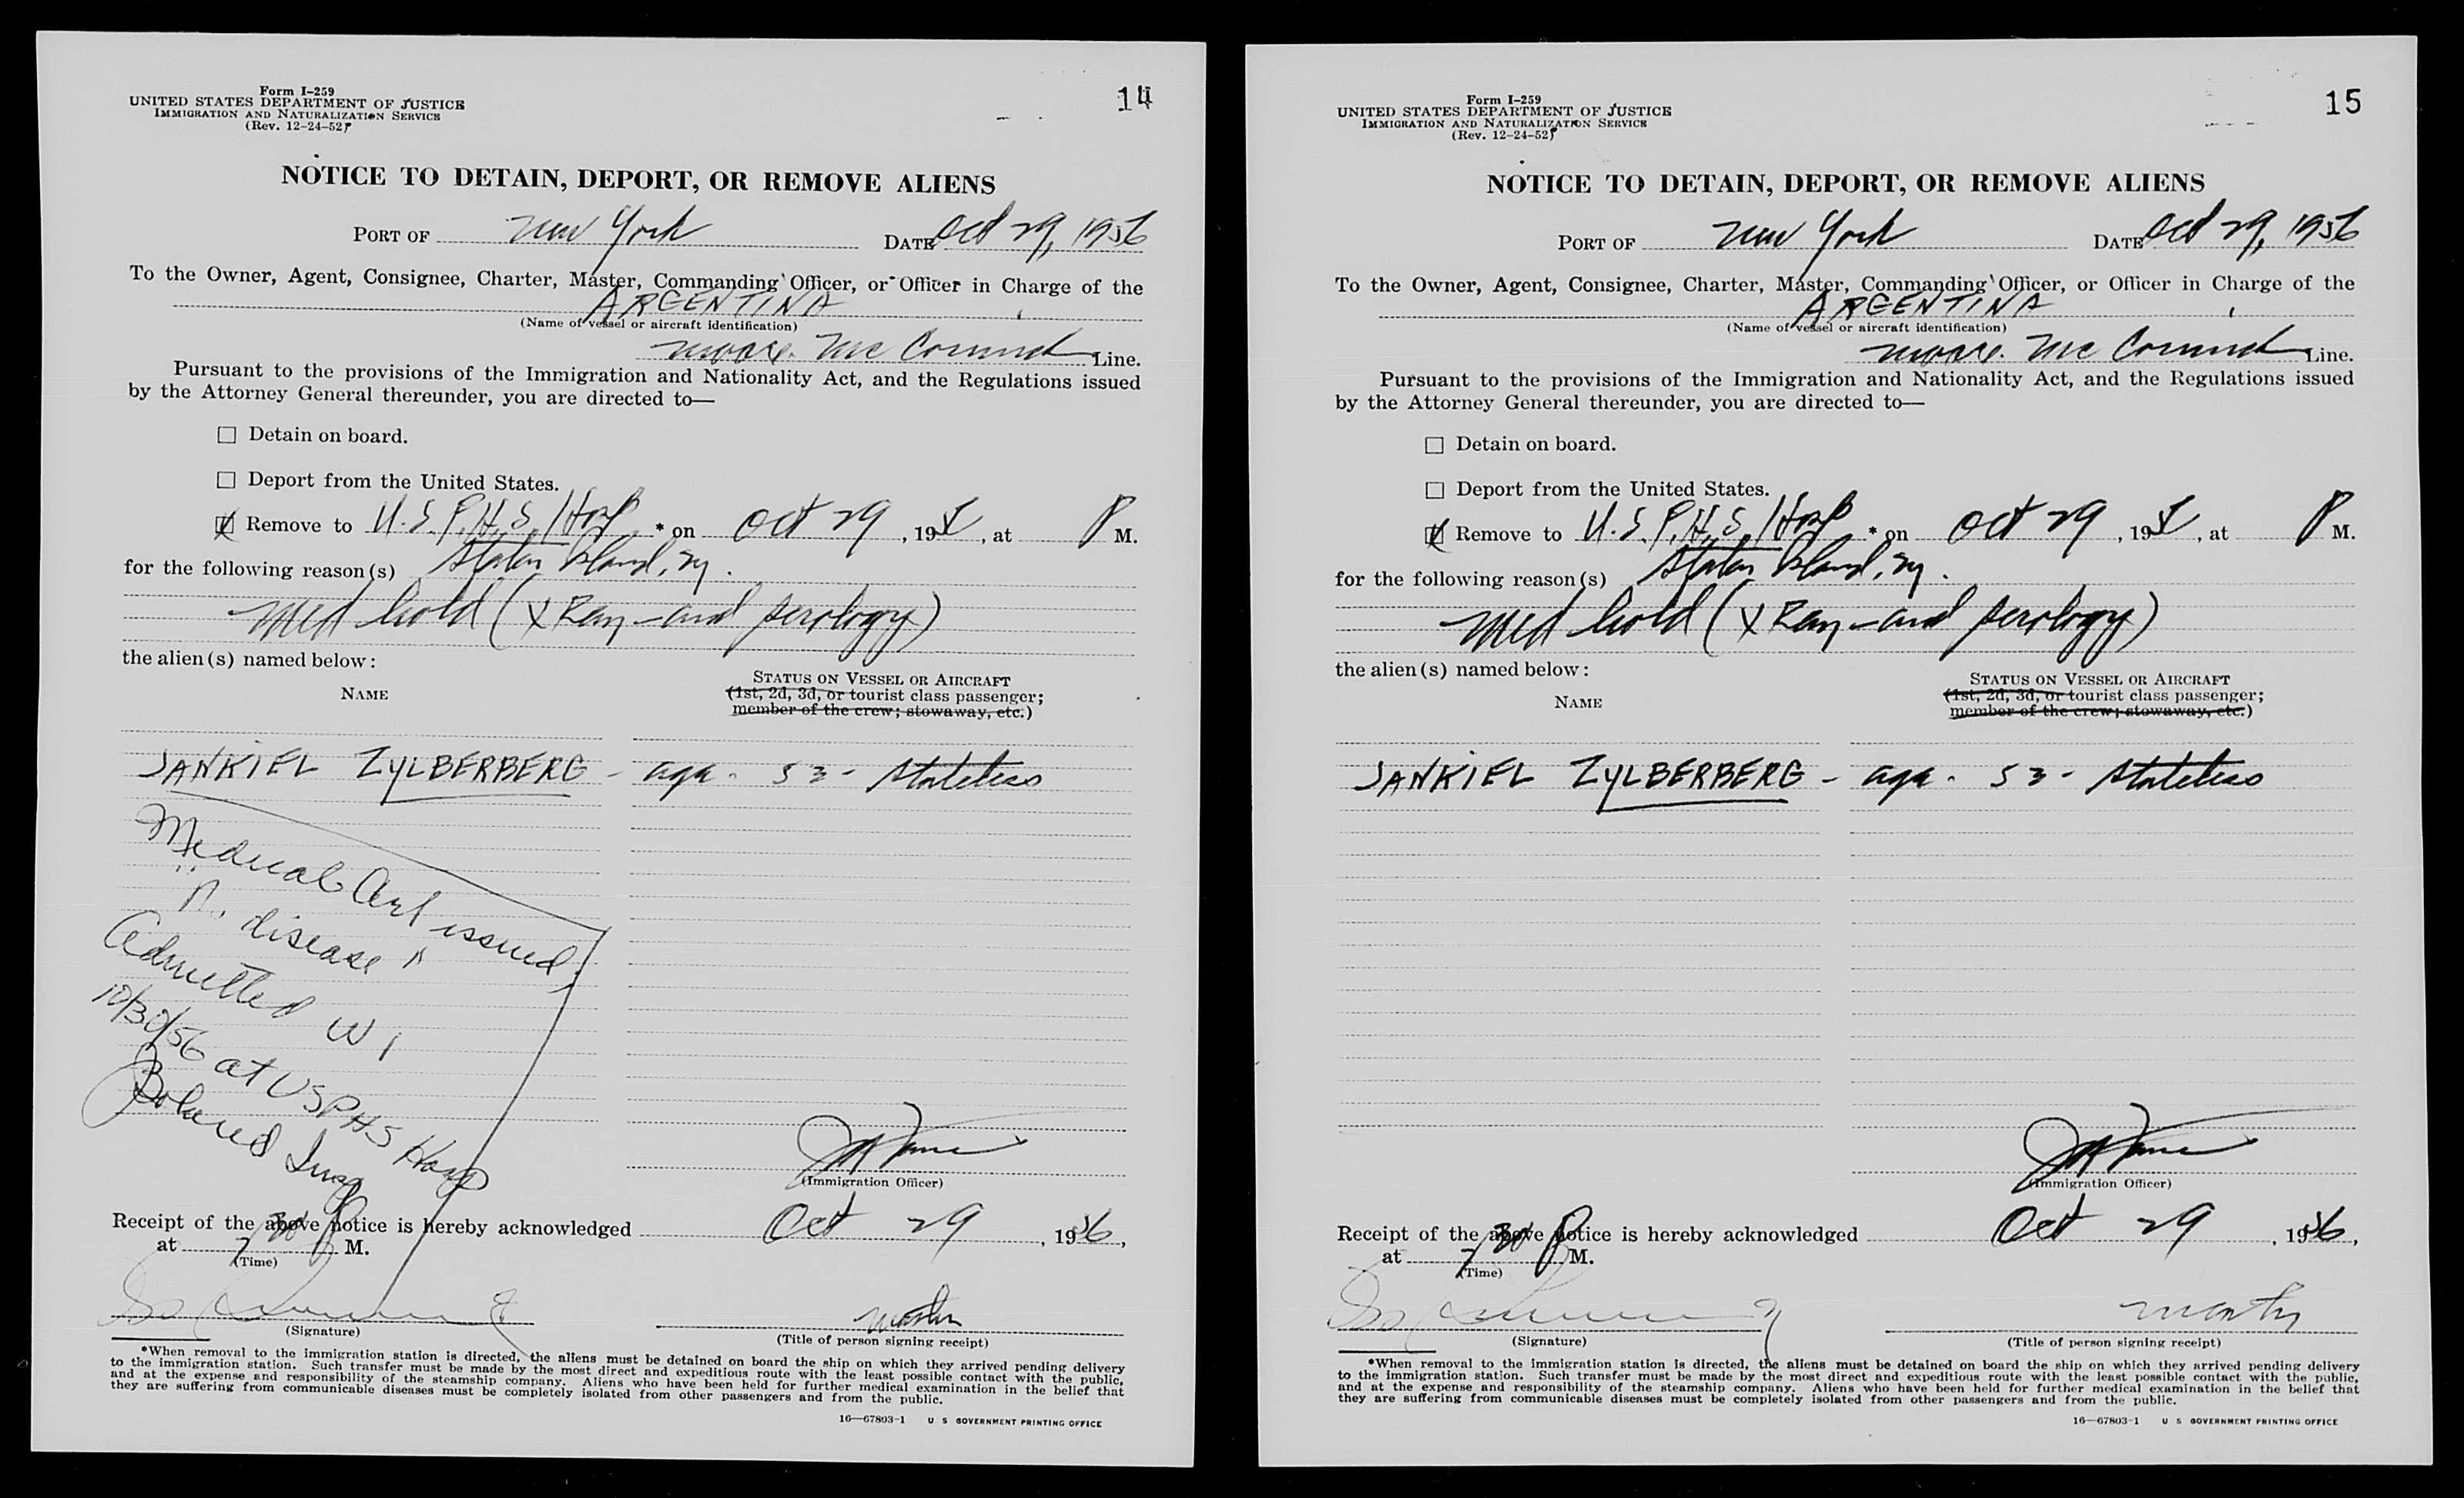 Form I-259
UNITED STATES DEPARTMENT OF JUSTICE
IMMIGRATION AND NATURALIZATION SERVICE
(Rev. 12-24-52)
14
NOTICE TO DETAIN, DEPORT, OR REMOVE ALIENS
PORT OF New York DATE Oct 29, 1956
To the Owner, Agent, Consignee, Charter, Master, Commanding Officer, or Officer in Charge of the
ARGENTINA
(Name of vessel or aircraft identification)
Moore. Mc Cormick Line.
Pursuant to the provisions of the Immigration and Nationality Act, and the Regulations issued
by the Attorney General thereunder, you are directed to—
Detain on board.
Deport from the United States.
Remove to U.S.P.H.S. Hosp * on Oct 29, 195, at P M.
for the following reason(s) Staten Island, Ny.
Med hold (X Ray - and serology)
the alien(s) named below:
NAME
STATUS ON VESSEL OR AIRCRAFT
(1st, 2d, 3d, or tourist class passenger;
member of the crew; stowaway, etc.)
JANKIEL ZYLBERBERG - age. 53 - stateless
Medical Cert issued,
disease "
Admitted
10/30/56 at USPHS Hosp
Insp
(Immigration Officer)
Receipt of the above notice is hereby acknowledged Oct 29, 1956,
at 7 30 P M.
(Time)
Master
(Signature)
(Title of person signing receipt)
*When removal to the immigration station is directed, the aliens must be detained on board the ship on which they arrived pending delivery
to the immigration station. Such transfer must be made by the most direct and expeditious route with the least possible contact with the public,
and at the expense and responsibility of the steamship company. Aliens who have been held for further medical examination in the belief that
they are suffering from communicable diseases must be completely isolated from other passengers and from the public.
16—67803-1 U S GOVERNMENT PRINTING OFFICE
Form I-259
UNITED STATES DEPARTMENT OF JUSTICE
IMMIGRATION AND NATURALIZATION SERVICE
(Rev. 12-24-52)
15
NOTICE TO DETAIN, DEPORT, OR REMOVE ALIENS
PORT OF New York DATE Oct 29, 1956
To the Owner, Agent, Consignee, Charter, Master, Commanding Officer, or Officer in Charge of the
ARGENTINA
(Name of vessel or aircraft identification)
Moore. Mc Cormick Line.
Pursuant to the provisions of the Immigration and Nationality Act, and the Regulations issued
by the Attorney General thereunder, you are directed to—
Detain on board.
Deport from the United States.
Remove to U.S.P.H.S. Hosp * on Oct 29, 195, at P M.
for the following reason(s) Staten Island, Ny.
Med hold (X Ray - and serology)
the alien(s) named below:
NAME
STATUS ON VESSEL OR AIRCRAFT
(1st, 2d, 3d, or tourist class passenger;
member of the crew; stowaway, etc.)
JANKIEL ZYLBERBERG - age. 53 - stateless
(Immigration Officer)
Receipt of the above notice is hereby acknowledged Oct 29, 1956,
at 7 30 P M.
(Time)
Master
(Signature)
(Title of person signing receipt)
*When removal to the immigration station is directed, the aliens must be detained on board the ship on which they arrived pending delivery
to the immigration station. Such transfer must be made by the most direct and expeditious route with the least possible contact with the public,
and at the expense and responsibility of the steamship company. Aliens who have been held for further medical examination in the belief that
they are suffering from communicable diseases must be completely isolated from other passengers and from the public.
16—67803-1 U S GOVERNMENT PRINTING OFFICE